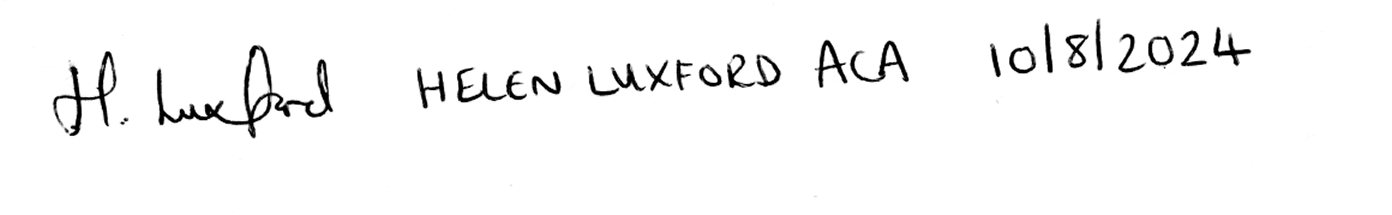 H. Luxford HELEN LUXFORD ACA 10/8/2024